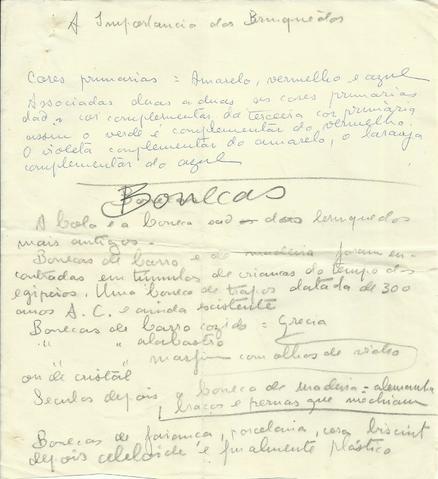 A Importancia dos Brinquedos
Cores primarias = Amarelo, vermelho e azul
Associadas duas a duas as cores primárias
dão a cor complementar da terceira cor primária
assim o verde é complementar do vermelho.
O violeta complementar do amarelo, o laranja
complementar do azul
Bonecas
A bola e a boneca são os dois brinquedos
mais antigos.
Bonecas de barro e de madeira foram en-
contradas em túmulos de crianças do tempo dos
egipcios. Uma boneca de trapos datada de 300
anos A. C. e ainda existente
Bonecas de barro cozido = Grecia
" " alabastro
" marfim com olhos de vidro
ou de cristal
Seculos depois a boneca de madeira - alemanha
braços e pernas que mechiam
Bonecas de faiança, porcelana, cera, biscuit
depois celuloide e finalmente plástico